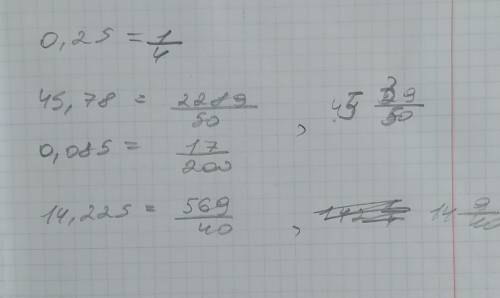 0,25 = 1/4
45,78 = 2289/50 , 45 39/50
0,085 = 17/200
14,225 = 569/40 , 14 9/40